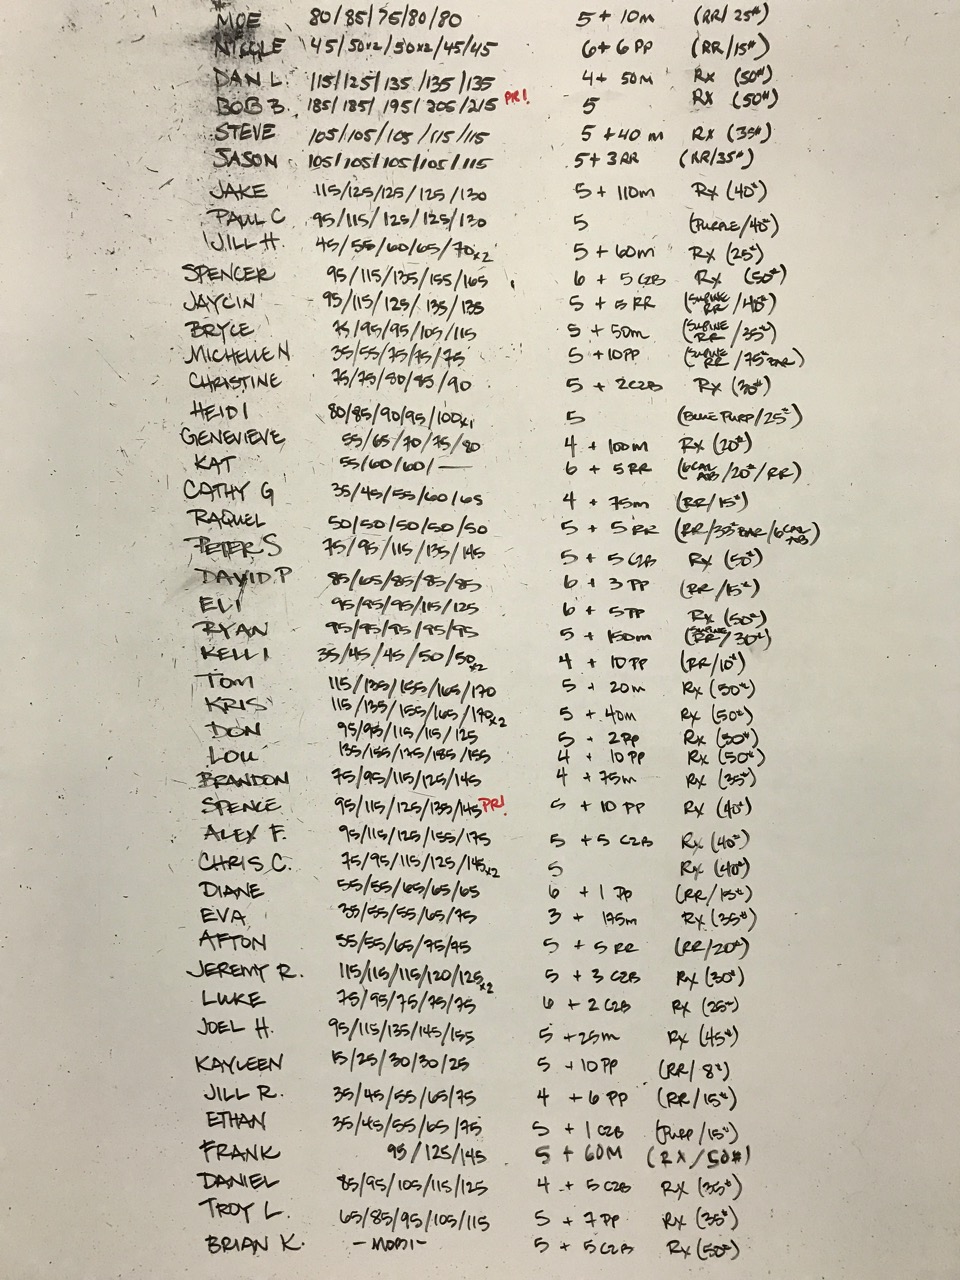 MOE 80/85/75/80/80 5 + 10m (RR/25#)
NICOLE 45/50x2/50x2/45/45 6 + 6 PP (RR/15#)
DAN L. 115/125/135/135/135 4 + 50m Rx (50#)
BOB B. 185/185/195/205/215 PR! 5 Rx (50#)
STEVE 105/105/105/115/115 5 + 40 m Rx (35#)
JASON 105/105/105/105/115 5 + 3 RR (RR/35#)
JAKE 115/125/125/125/130 5 + 110m Rx (40#)
PAUL C 95/115/125/125/130 5 (PURPLE/40#)
JILL H. 45/55/60/65/70x2 5 + 60m Rx (25#)
SPENCER 95/115/135/155/165 6 + 5 C2B Rx (50#)
JAYCIN 95/115/125/135/135 5 + 5 RR (SUPINE RR/40#)
BRYCE 75/95/95/105/115 5 + 50m (SUPINE RR/35#)
MICHELLE N 35/55/75/75/75 5 + 10PP (SUPINE RR/75# BAR)
CHRISTINE 75/75/80/85/90 5 + 2 C2B Rx (30#)
HEIDI 80/85/90/95/100x1 5 (BLUE PURP/25#)
GENEVIEVE 55/65/70/75/80 4 + 100m Rx (20#)
KAT 55/60/60/— 6 + 5 RR (6 CAL AB/20#/RR)
CATHY G 35/45/55/60/65 4 + 75m (RR/15#)
RAQUEL 50/50/50/50/50 5 + 5 RR (RR/35# BAR/6 CAL AB)
PETER S 75/95/115/135/145 5 + 5 C2B Rx (50#)
DAVID P 85/65/85/85/85 6 + 3 PP (RR/15#)
ELI 95/95/95/115/125 6 + 5PP Rx (50#)
RYAN 95/95/95/95/95 5 + 150m (SUPINE RR/30#)
KELLI 35/45/45/50/50x2 4 + 10 PP (RR/10#)
TOM 115/135/155/165/170 5 + 20m Rx (50#)
KRIS 115/135/155/165/170x2 5 + 40m Rx (50#)
DON 95/95/115/115/125 5 + 2PP Rx (50#)
LOU 135/155/175/185/155 4 + 10 PP Rx (50#)
BRANDON 75/95/115/125/145 4 + 75m Rx (35#)
SPENCE 95/115/125/135/145 PR! 5 + 10 PP Rx (40#)
ALEX F. 95/115/125/155/175 5 + 5 C2B Rx (40#)
CHRIS C. 75/95/115/125/145x2 5 Rx (40#)
DIANE 55/55/65/65/65 6 + 1 PP (RR/15#)
EVA 35/55/55/65/75 3 + 175m Rx (35#)
AFTON 55/55/65/75/75 5 + 5 RR (RR/20#)
JEREMY R. 115/115/115/120/125x2 5 + 3 C2B Rx (30#)
LUKE 75/95/75/75/75 6 + 2 C2B Rx (25#)
JOEL H. 95/115/135/145/155 5 + 25m Rx (45#)
KAYLEEN 15/25/30/30/25 5 + 10 PP (RR/8#)
JILL R. 35/45/55/65/75 4 + 6 PP (RR/15#)
ETHAN 35/45/55/65/75 5 + 1 C2B (PURP/15#)
FRANK 95/125/145 5 + 60M (RX/50#)
DANIEL 85/95/105/115/125 4 + 5 C2B Rx (35#)
TROY L. 65/85/95/105/115 5 + 7 PP Rx (35#)
BRIAN K. -MOBI- 5 + 5 C2B Rx (50#)